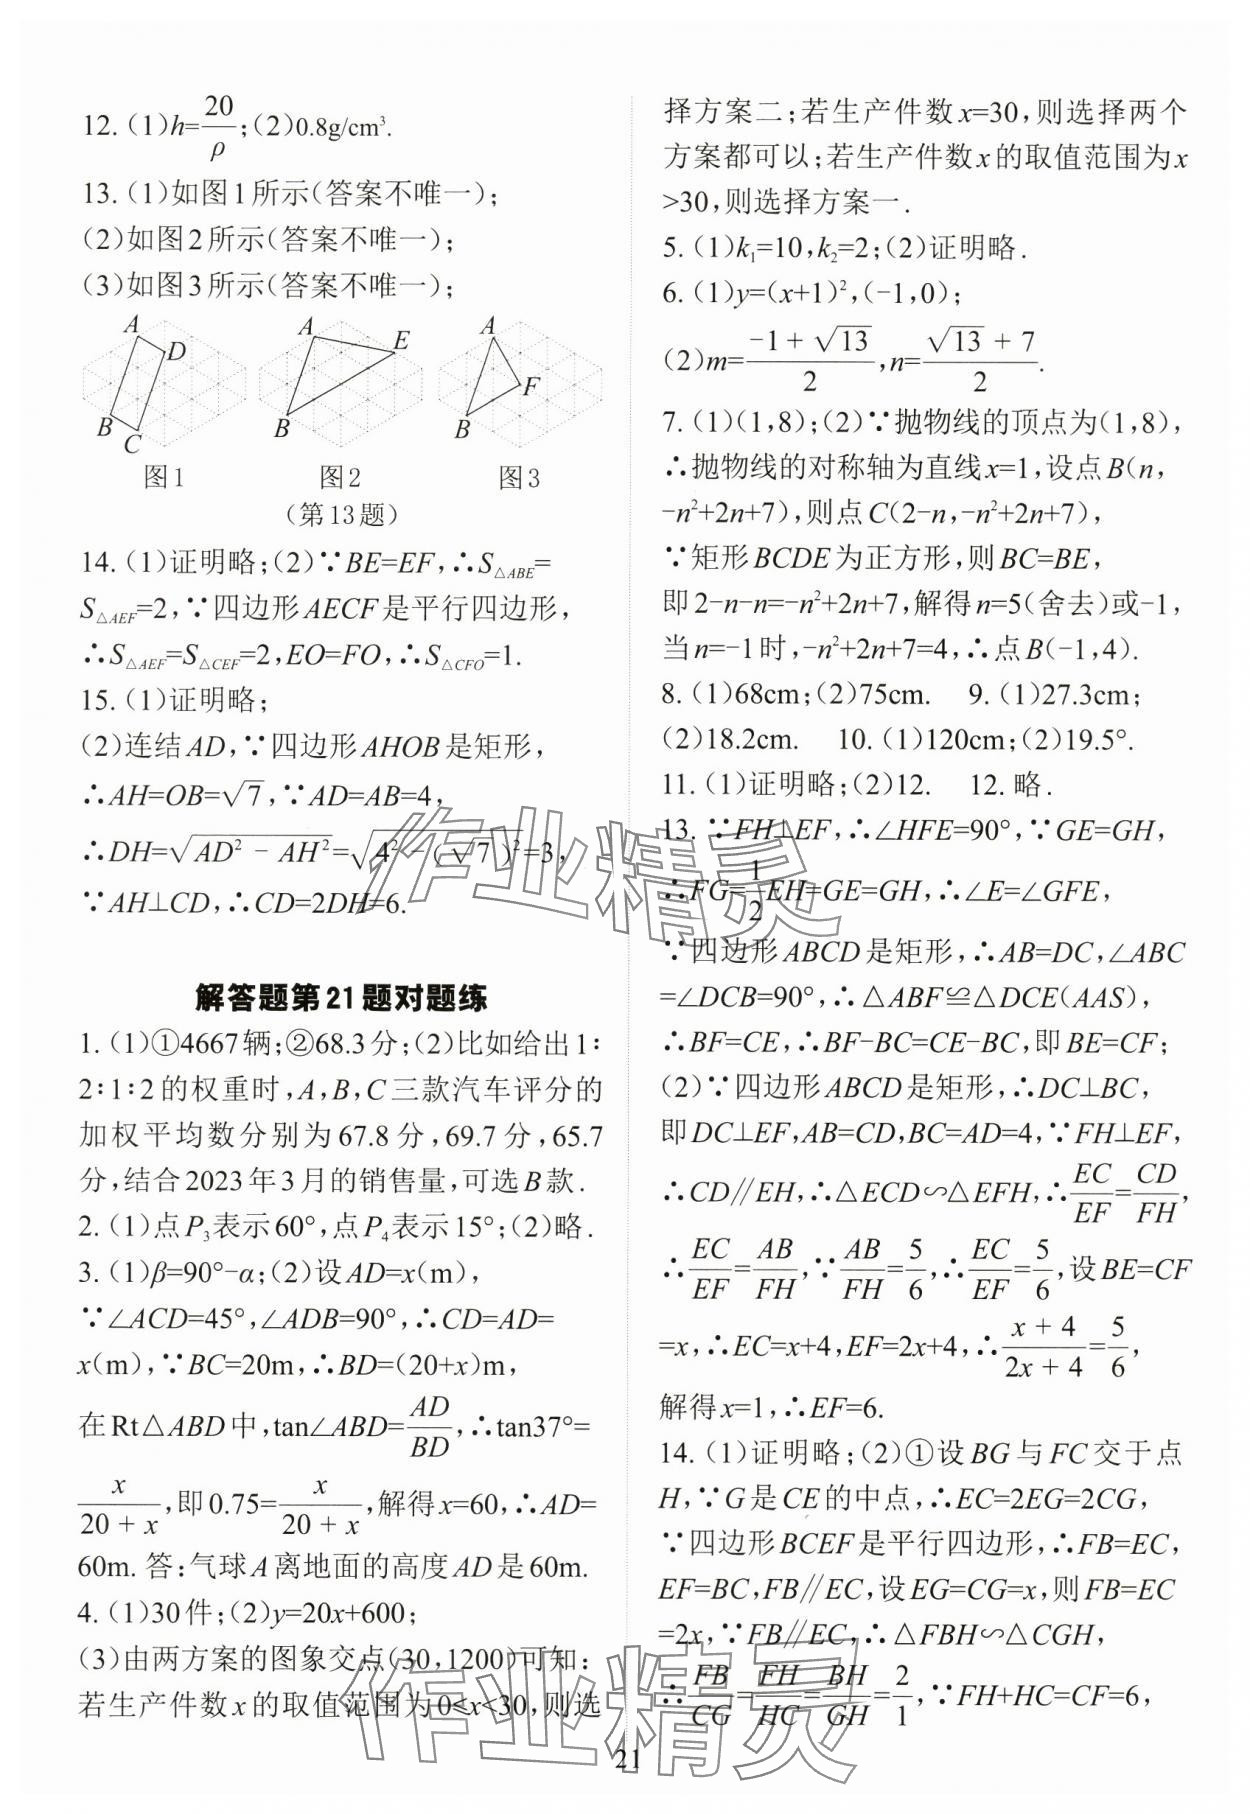 12. (1)h=20/ρ;(2)0.8g/cm³.
13. (1)如图1所示(答案不唯一);
(2)如图2所示(答案不唯一);
(3)如图3所示(答案不唯一);
A D B C
A E B
A F B
图1 图2 图3
(第13题)
14. (1)证明略;(2)∵BE=EF,∴S△ABE=
S△AEF=2,∵四边形AECF是平行四边形,
∴S△AEF=S△CEF=2,EO=FO,∴S△CFO=1.
15. (1)证明略;
(2)连结AD,∵四边形AHOB是矩形,
∴AH=OB=√7,∵AD=AB=4,
∴DH=√(AD²-AH²)=√(4²-(√7)²)=3,
∵AH⊥CD,∴CD=2DH=6.
解答题第21题对题练
1. (1)①4667辆;②68.3分;(2)比如给出1:
2:1:2的权重时,A,B,C三款汽车评分的
加权平均数分别为67.8分,69.7分,65.7
分,结合2023年3月的销售量,可选B款.
2. (1)点P₃表示60°,点P₄表示15°;(2)略.
3. (1)β=90°-α;(2)设AD=x(m),
∵∠ACD=45°,∠ADB=90°,∴CD=AD=
x(m),∵BC=20m,∴BD=(20+x)m,
在Rt△ABD中,tan∠ABD=AD/BD,∴tan37°=
x/(20+x),即0.75=x/(20+x),解得x=60,∴AD=
60m. 答:气球A离地面的高度AD是60m.
4. (1)30件;(2)y=20x+600;
(3)由两方案的图象交点(30,1200)可知:
若生产件数x的取值范围为0≤x<30,则选
择方案二;若生产件数x=30,则选择两个
方案都可以;若生产件数x的取值范围为x
>30,则选择方案一.
5. (1)k₁=10,k₂=2;(2)证明略.
6. (1)y=(x+1)²,(-1,0);
(2)m=(-1+√13)/2,n=(√13+7)/2.
7. (1)(1,8);(2)∵抛物线的顶点为(1,8),
∴抛物线的对称轴为直线x=1,设点B(n,
-n²+2n+7),则点C(2-n,-n²+2n+7),
∵矩形BCDE为正方形,则BC=BE,
即2-n-n=-n²+2n+7,解得n=5(舍去)或-1,
当n=-1时,-n²+2n+7=4,∴点B(-1,4).
8. (1)68cm;(2)75cm. 9. (1)27.3cm;
(2)18.2cm. 10. (1)120cm;(2)19.5°.
11. (1)证明略;(2)12. 12. 略.
13. ∵FH⊥EF,∴∠HFE=90°,∵GE=GH,
∴FG=1/2EH=GE=GH,∴∠E=∠GFE,
∵四边形ABCD是矩形,∴AB=DC,∠ABC
=∠DCB=90°,∴△ABF≌△DCE(AAS),
∴BF=CE,∴BF-BC=CE-BC,即BE=CF;
(2)∵四边形ABCD是矩形,∴DC⊥BC,
即DC⊥EF,AB=CD,BC=AD=4,∵FH⊥EF,
∴CD∥EH,∴△ECD∽△EFH,∴EC/EF=CD/FH,
∴EC/EF=AB/FH,∵AB/FH=5/6,∴EC/EF=5/6,设BE=CF
=x,∴EC=x+4,EF=2x+4,∴(x+4)/(2x+4)=5/6,
解得x=1,∴EF=6.
14. (1)证明略;(2)①设BG与FC交于点
H,∵G是CE的中点,∴EC=2EG=2CG,
∵四边形BCEF是平行四边形,∴FB=EC,
EF=BC,FB∥EC,设EG=CG=x,则FB=EC
=2x,∵FB∥EC,∴△FBH∽△CGH,
∴FB/CG=FH/HC=BH/GH=2/1,∵FH+HC=CF=6,
21
作业精灵
作业精灵